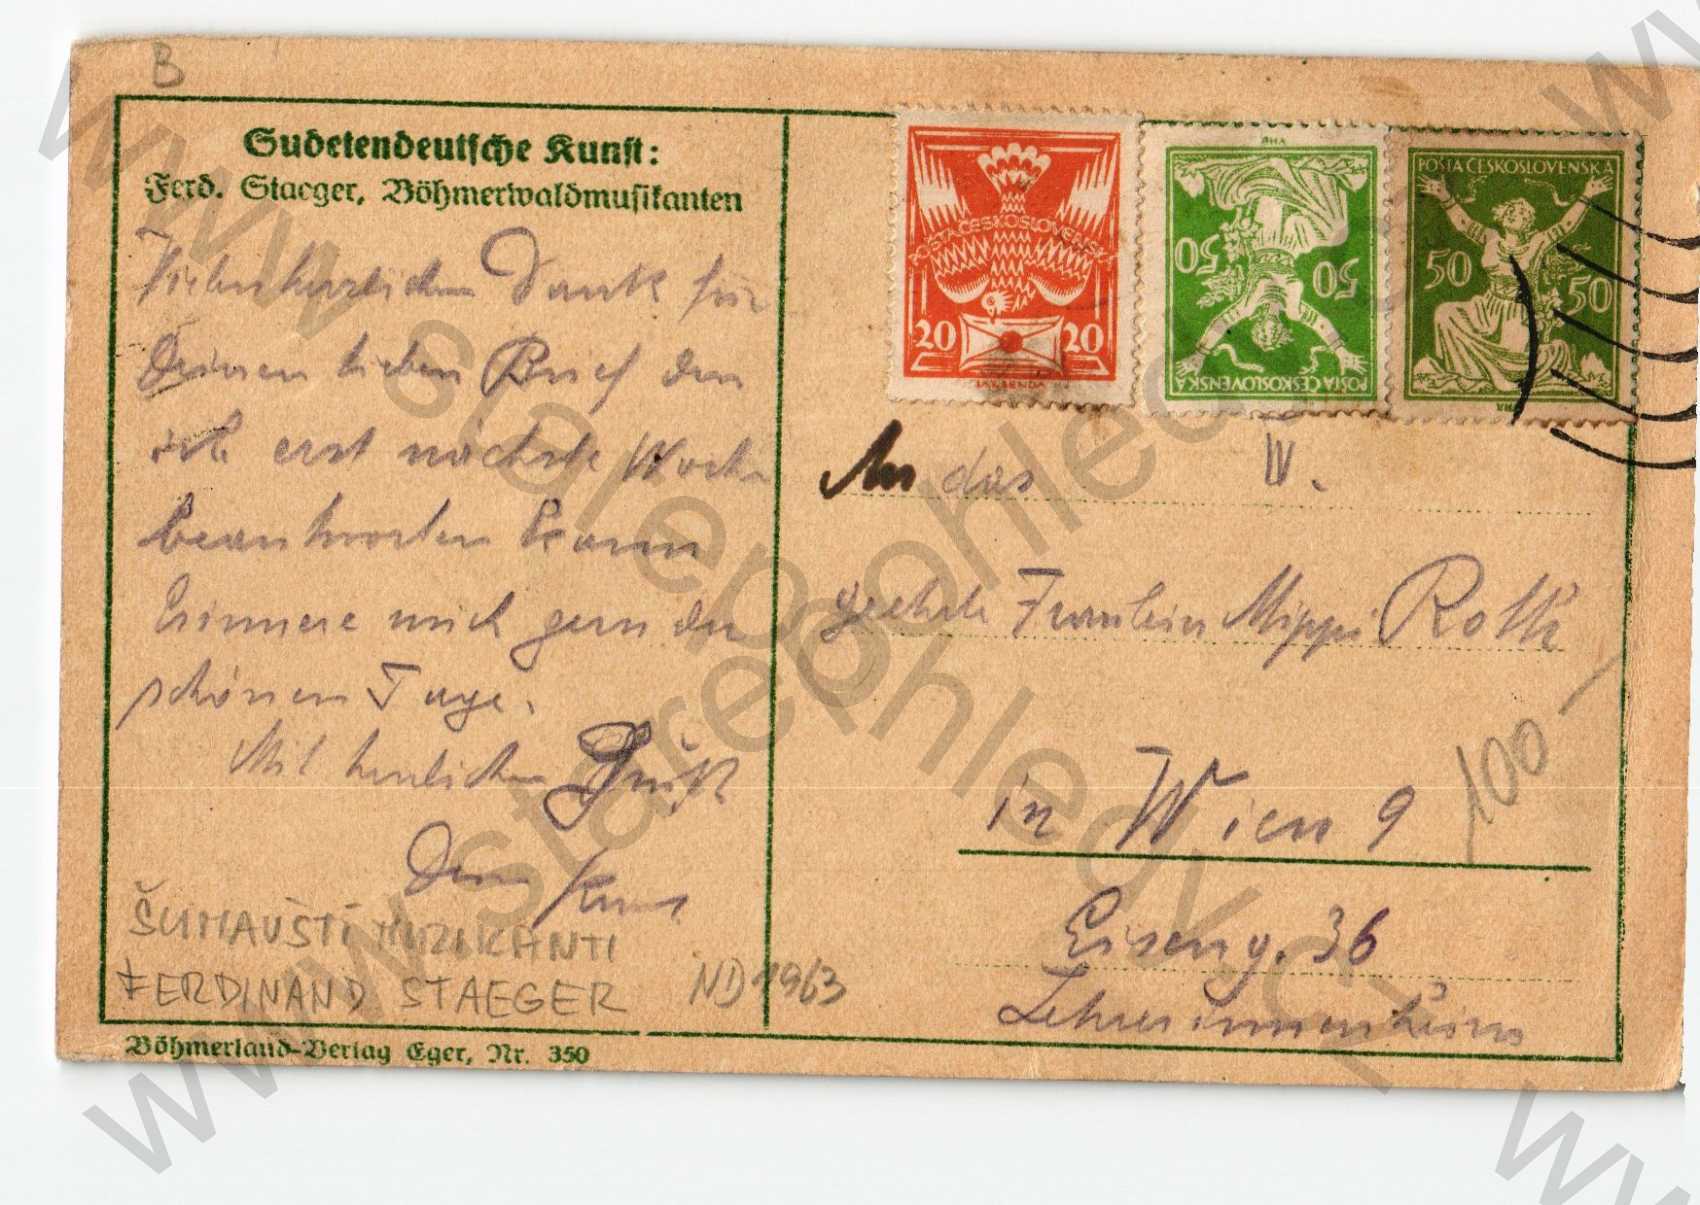 B
Sudetendeutsche Kunst:
Ferd. Staeger, Böhmerwaldmusikanten
Vielen herzlichen Dank für
Deinen lieben Brief den
ich erst nächste Woche
beantworten kann
Erinnere mich gern der
schönen Tage.
Mit herzlichen Gruß
Dein
ŠUMAVŠTÍ MUZIKANTI
FERDINAND STAEGER
ND 1963
Böhmerland-Verlag Eger, Nr. 350
POŠTA ČESKOSLOVENSKÁ
20 20
JAK. BENDA
POŠTA ČESKOSLOVENSKÁ
50 50
POŠTA ČESKOSLOVENSKÁ
50 50
An das W.
geehrte Fräulein Mippi Roth
in Wien 9
100
Eiseng. 36
Lehrerinnenheim
www.starepohledy.cz